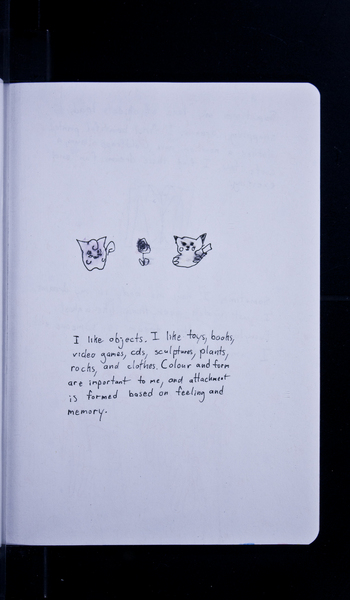 I like objects. I like toys, books,
video games, cds, sculptures, plants,
rocks, and clothes. Colour and form
are important to me, and attachment
is formed based on feeling and
memory.